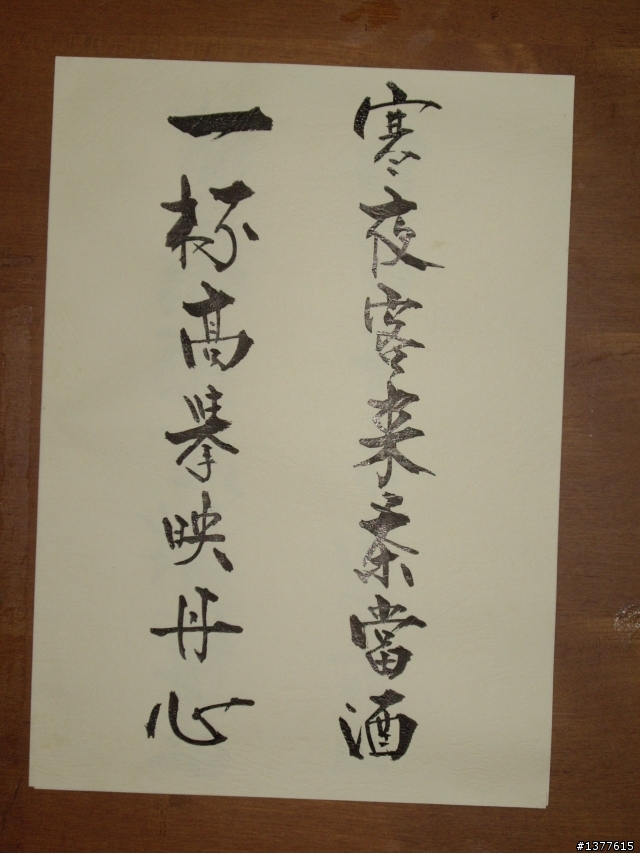 寒夜客来茶當酒
一杯高舉映丹心
#1377615